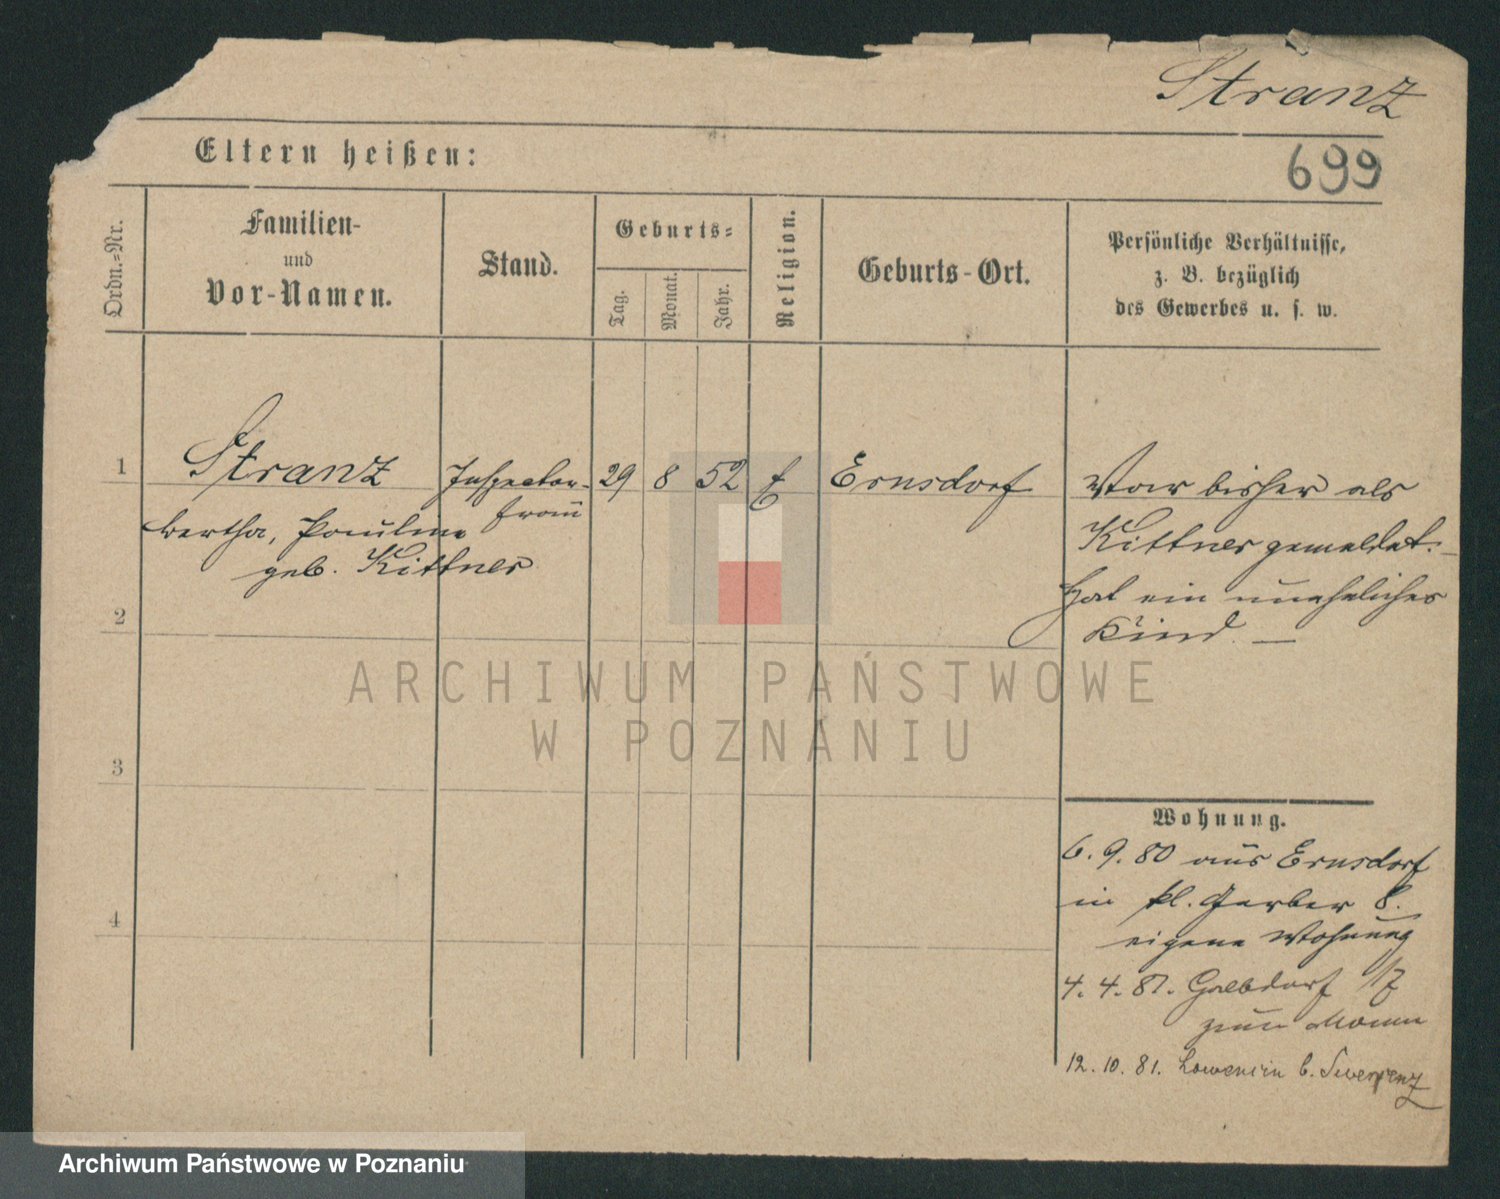 Stranz
Eltern heißen:
699
Ordn.-Nr.
Familien-
und
Vor-Namen.
Stand.
Geburts-
Tag.
Monat.
Jahr.
Religion.
Geburts-Ort.
Persönliche Verhältnisse,
z. B. bezüglich
des Gewerbes u. s. w.
1
Stranz
Inspector-
frau
29 8 52 E
Ernsdorf
War bisher als
Bertha, Pauline
geb. Kittner
Kittner gemeldet.
Hat ein uneheliches
Kind. —
2
3
4
Wohnung.
6. 9. 80 aus Ernsdorf
in kl. Gerber 8.
eigene Wohnung
4. 4. 81.
zum Mann
12. 10. 81. Lowencin b. Swersenz
ARCHIWUM PAŃSTWOWE
W POZNANIU
Archiwum Państwowe w Poznaniu